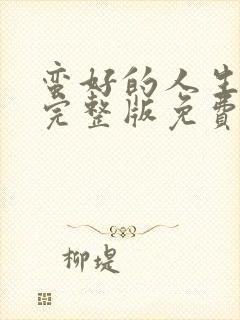 蛮好的人生
完整版免費
柳堤